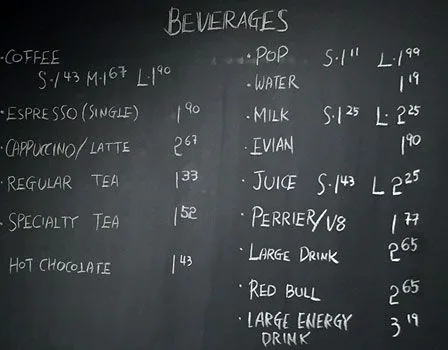 BEVERAGES
· COFFEE
S·1 43 M·1 67 L·1 90
· ESPRESSO (SINGLE) 1 90
· CAPPUCCINO/LATTE 2 67
· REGULAR TEA 1 33
· SPECIALTY TEA 1 52
HOT CHOCOLATE 1 43
· POP S·1 11 L·1 99
· WATER 1 19
· MILK S·1 25 L·2 25
· EVIAN 1 90
· JUICE S·1 43 L·2 25
· PERRIER/V8 1 77
· LARGE DRINK 2 65
· RED BULL 2 65
· LARGE ENERGY
DRINK 3 19